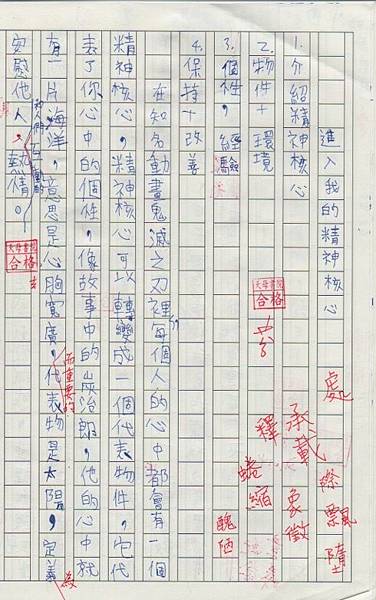 進入我的精神核心
處
飄
墮
承載
象徵
釋
蜷縮
醜陋
1.介紹精神核心
2.物件+環境
天母書院
合格
3.個性，經驗
4.保持+改善
在知名動畫鬼滅之刃裡，每個人的心中都會有一個
精神核心，精神核心可以轉變成一個代表物件，它代
表了你心中的個性，像故事中的炭治郎，他的心中就
而重要的
有一片海洋，意思是心胸寬廣，代表物是太陽，定義
為
安慰他人、熱情。
天母書院
合格